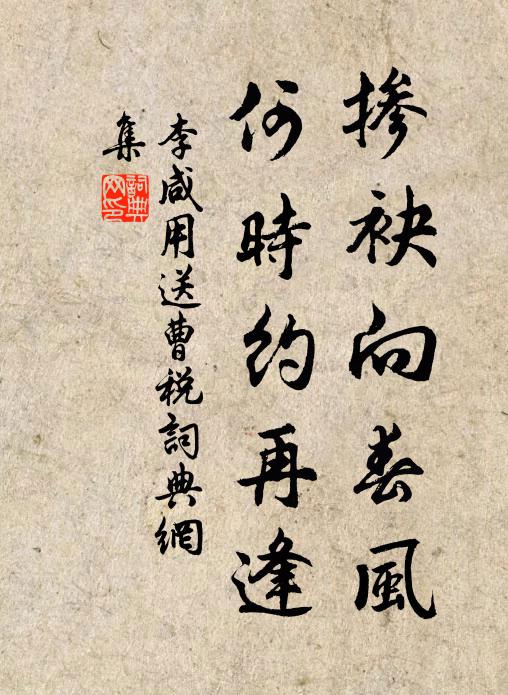 掺袂向春風
何時約再逢
李咸用送曹税詞典網
集
詞典
网印